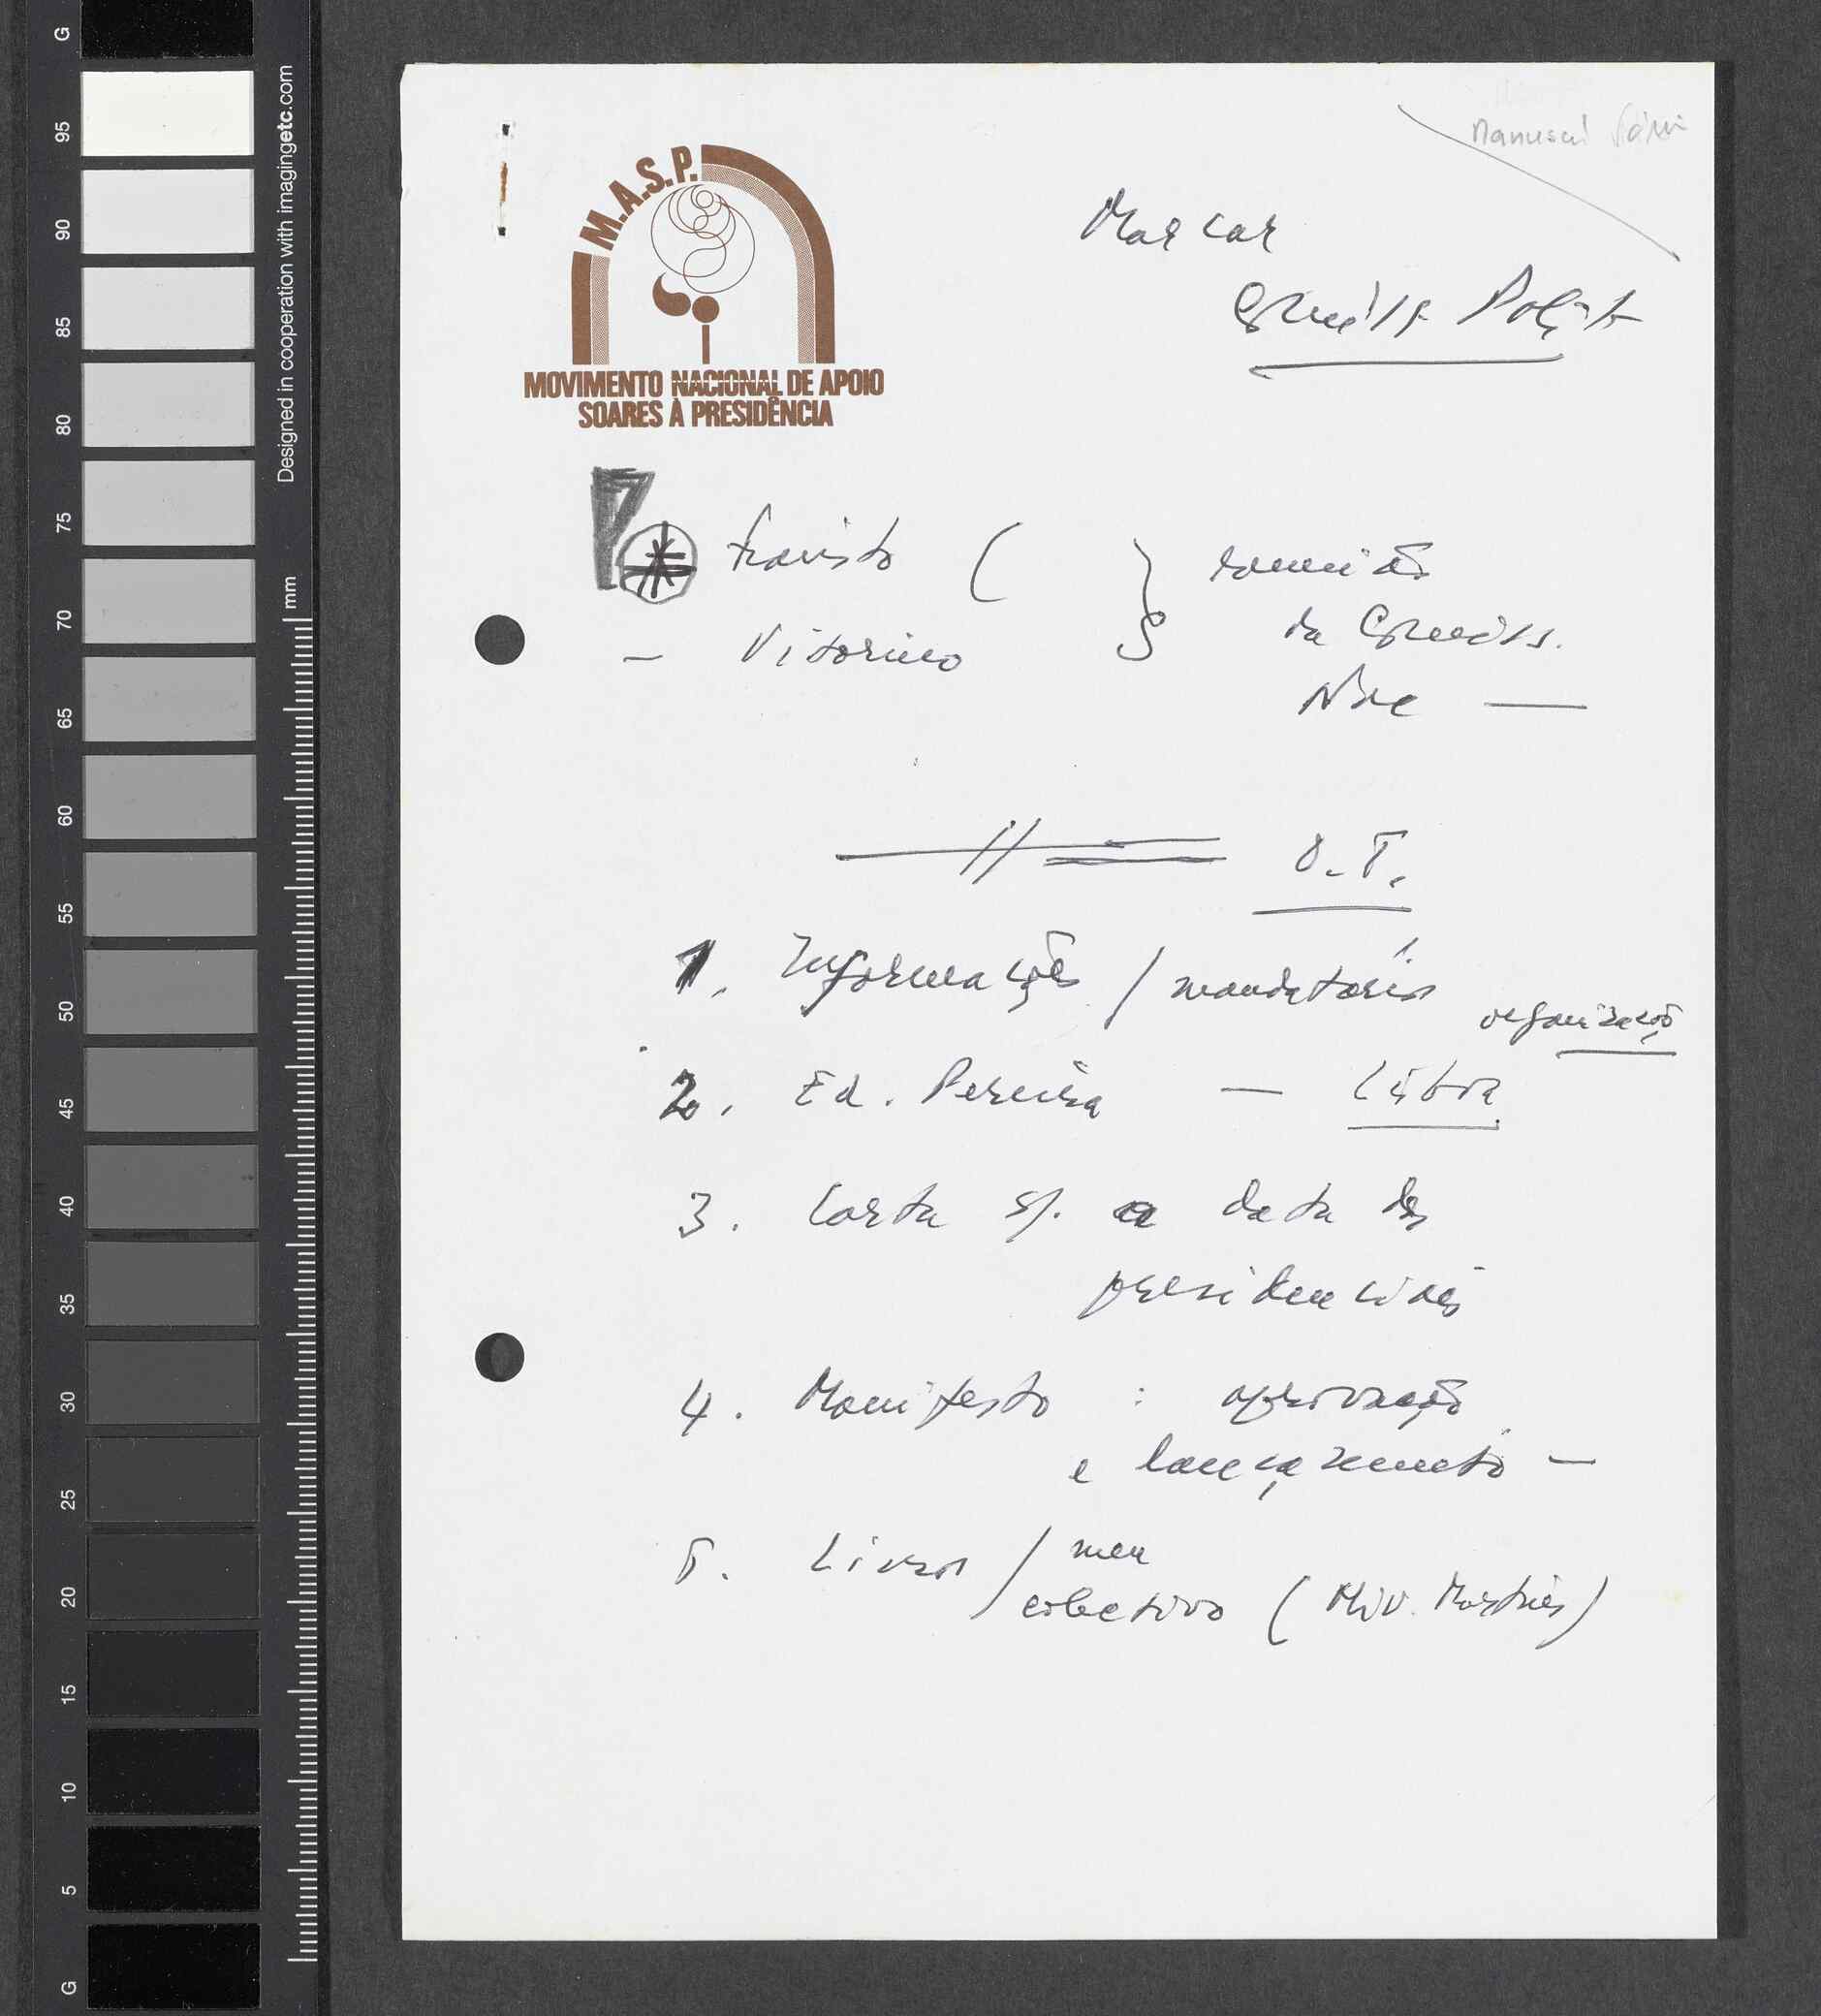 M.A.S.P.
MOVIMENTO NACIONAL DE APOIO
SOARES À PRESIDÊNCIA
Marcar
reunião
- Vitorino
da
O.T.
1. Informações / mandatários
organização
2. Ed. Pereira - Lisboa
3. Carta s/. a data das
presidenciais
4. Manifesto : aprovação
e lançamento -
5. Livros / meu
colectivo ( Martins)
Designed in cooperation with imagingetc.com
mm
G
95
90
85
80
75
70
65
60
55
50
45
40
35
30
25
20
15
10
5
G